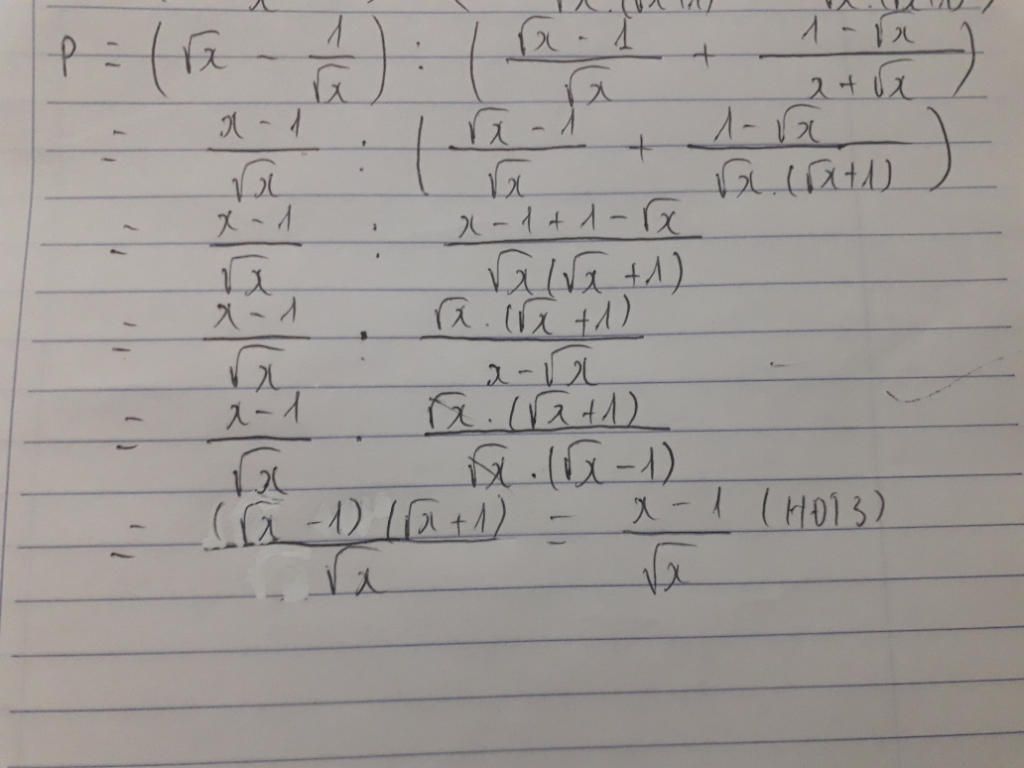 P = (√x − 1/√x) : ((√x − 1)/√x + (1 − √x)/(x + √x))
= (x − 1)/√x : ((√x − 1)/√x + (1 − √x)/(√x . (√x + 1)))
= (x − 1)/√x : (x − 1 + 1 − √x)/(√x (√x + 1))
= (x − 1)/√x . (√x . (√x + 1))/(x − √x)
= (x − 1)/√x . (√x . (√x + 1))/(√x . (√x − 1))
= ((√x − 1) (√x + 1))/√x = (x − 1)/√x